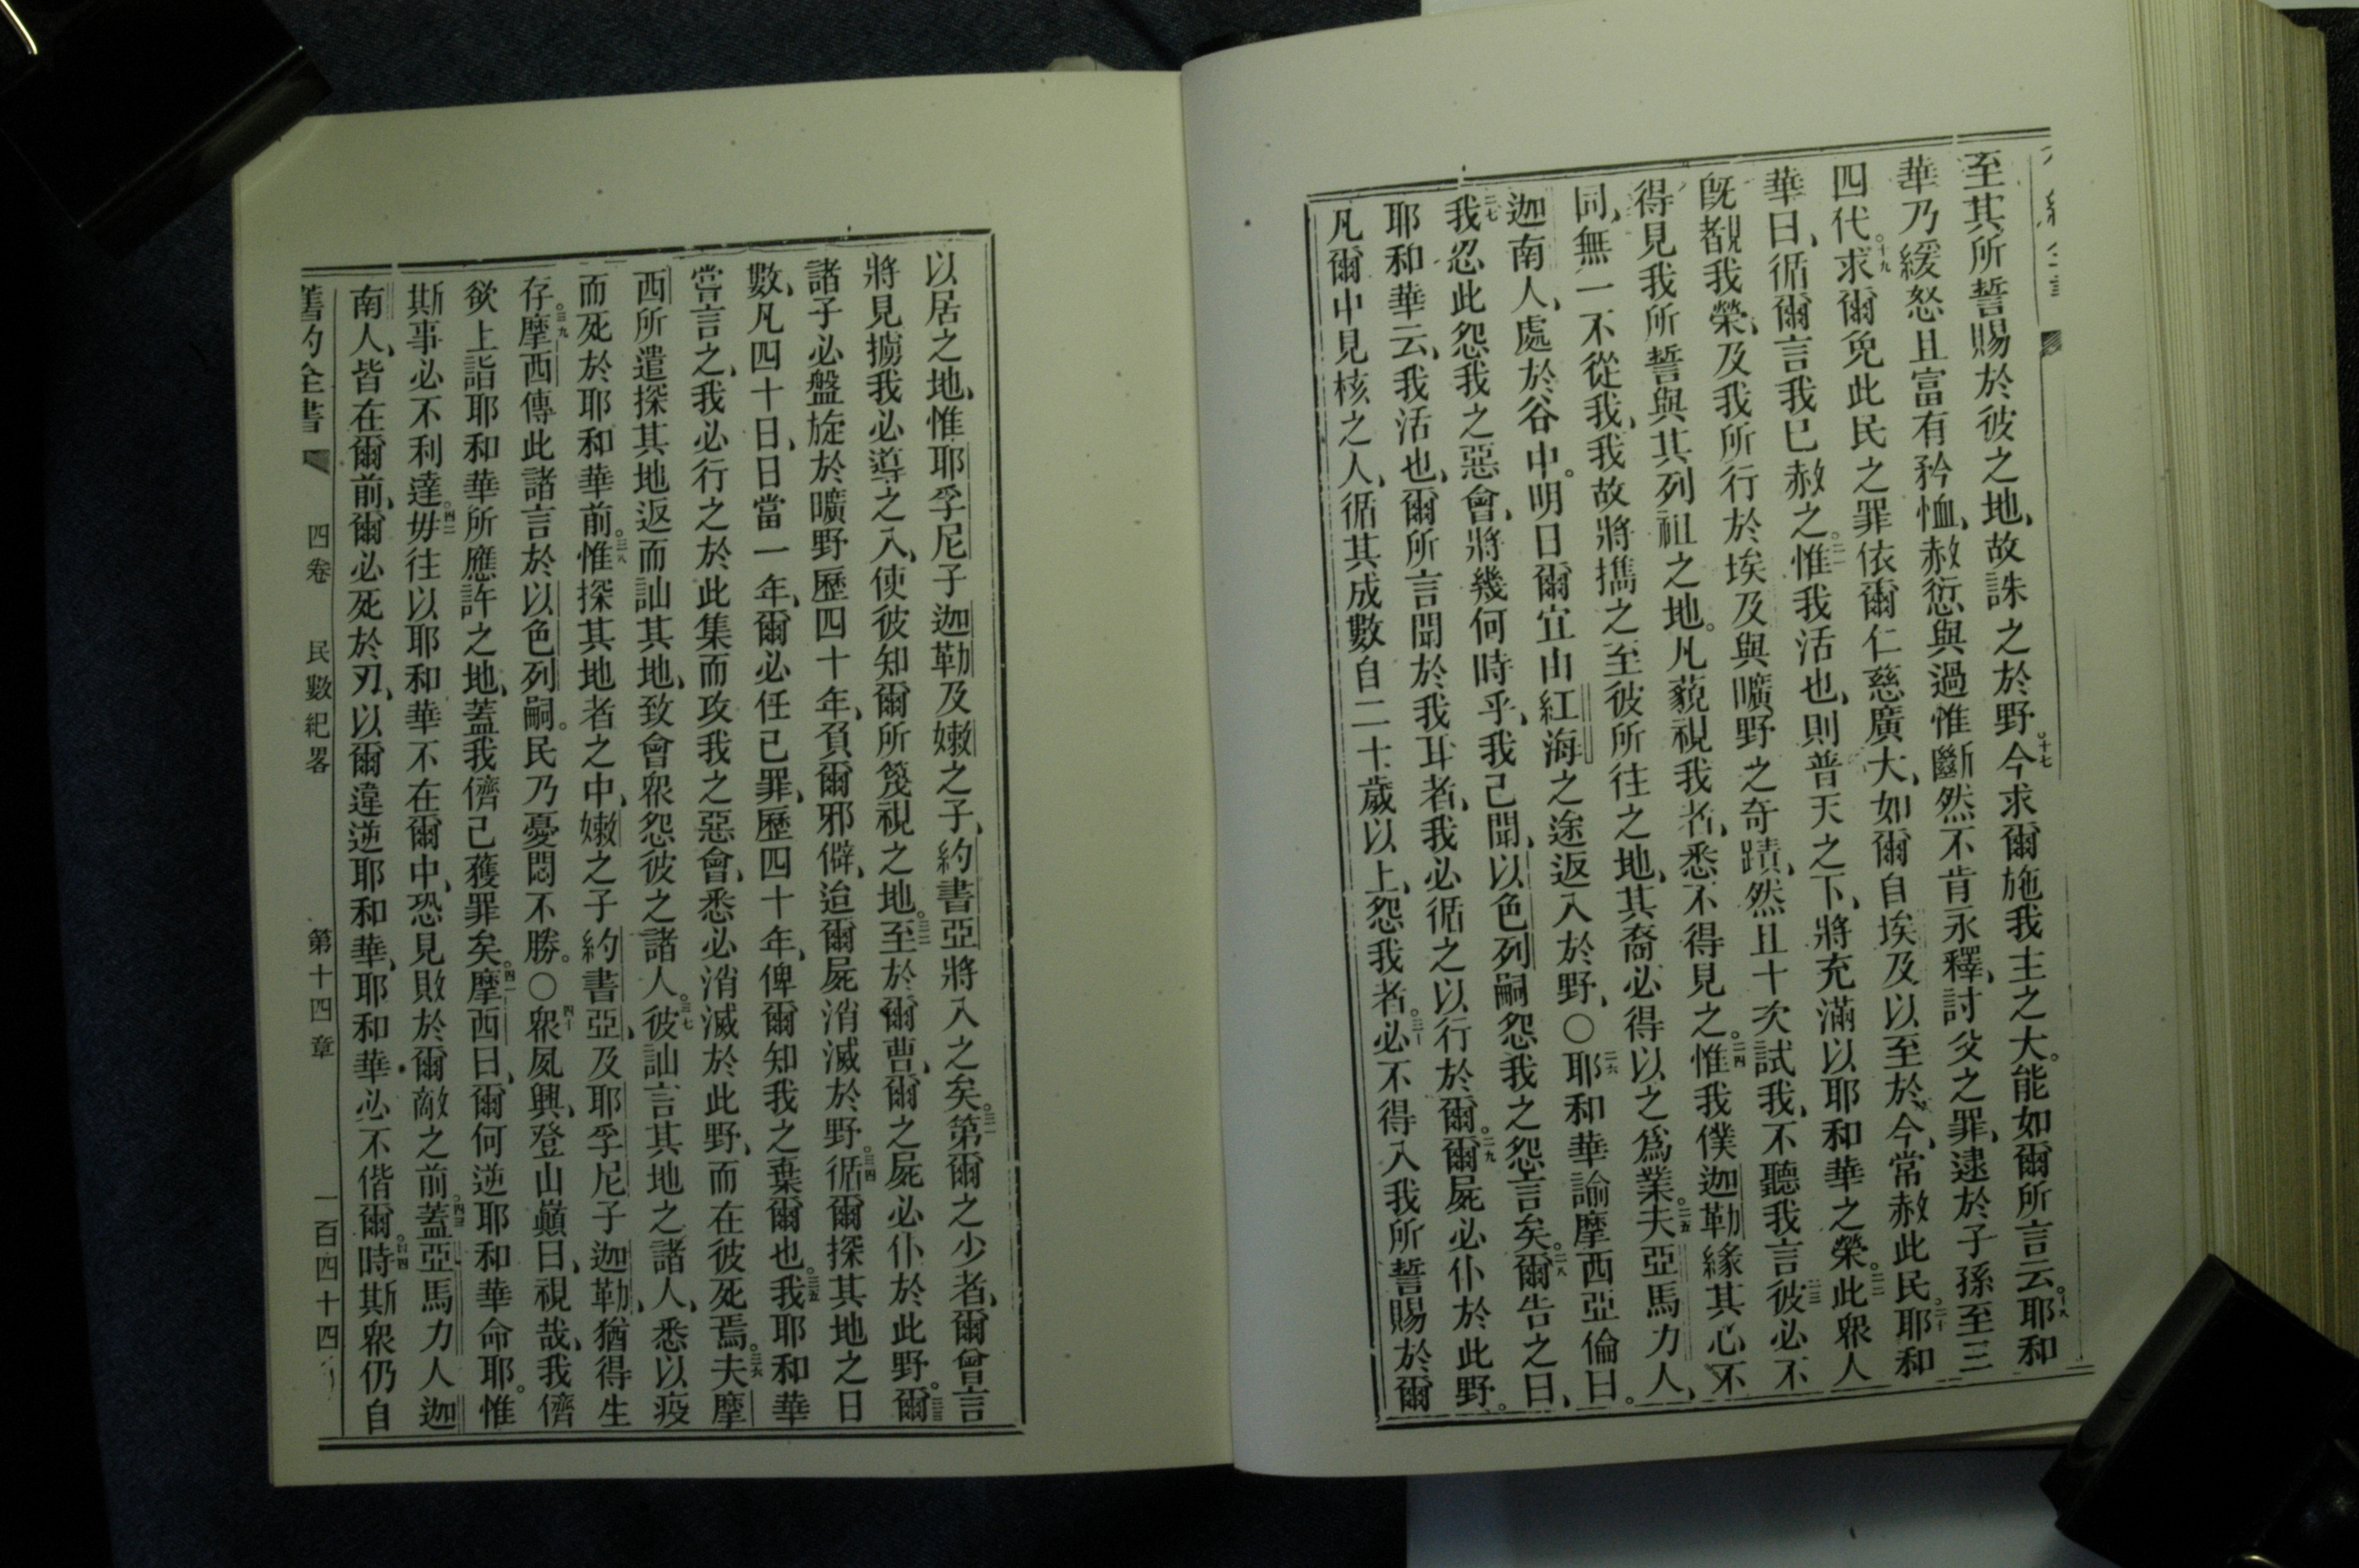 至其所誓賜於彼之地、故誅之於野。十七今求爾施我主之大。能如爾所言云。十八耶和
華乃緩怒且富有矜恤、赦愆與過惟斷然不肯永釋、討父之罪、逮於子孫至三
四代。十九求爾免此民之罪依爾仁慈廣大、如爾自埃及以至於今、常赦此民。二十耶和
華曰、循爾言我已赦之。二一惟我活也、則普天之下、將充滿以耶和華之榮。二二此眾人
旣覩我榮、及我所行於埃及與曠野之奇蹟、然且十次試我、不聽我言二三彼必不
得見我所誓與其列祖之地。凡藐視我者、悉不得見之。二四惟我僕迦勒緣其心不
同、無一不從我、我故將攜之至彼所往之地、其裔必得以之爲業。二五夫亞馬力人、
迦南人、處於谷中。明日爾宜由紅海之途返入於野、〇二六耶和華諭摩西亞倫曰。
二七我忍此怨我之惡會、將幾何時乎、我己聞、以色列嗣怨我之怨言矣。二八爾告之曰、
耶和華云、我活也、爾所言聞於我耳者、我必循之以行於爾。二九爾屍必仆於此野。
凡爾中見核之人、循其成數自二十歲以上、怨我者。三十必不得入我所誓賜於爾
以居之地、惟耶孚尼子迦勒及嫩之子、約書亞將入之矣。三一第爾之少者、爾曾言
將見擄我必導之入、使彼知爾所篾視之地。三二至於爾曹、爾之屍必仆於此野。三三爾
諸子必盤旋於曠野歷四十年、負爾邪僻、迨爾屍消滅於野。三四循爾探其地之日
數、凡四十日、日當一年、爾必任己罪、歷四十年、俾爾知我之棄爾也。三五我耶和華
嘗言之、我必行之於此集而攻我之惡會、悉必消滅於此野、而在彼死焉。三六夫摩
西所遣探其地返而訕其地、致會眾怨彼之諸人。三七彼訕言其地之諸人、悉以疫
而死於耶和華前。三八惟探其地者之中、嫩之子約書亞、及耶孚尼子迦勒、猶得生
存。三九摩西傳此諸言於以色列嗣。民乃憂悶不勝。〇四十眾夙興、登山巔曰、視哉、我儕
欲上詣耶和華所應許之地、蓋我儕己獲罪矣。四一摩西曰、爾何逆耶和華命耶。惟
斯事必不利達。四二毋往以耶和華不在爾中、恐見敗於爾敵之前。四三蓋亞馬力人迦
南人、皆在爾前、爾必死於刃、以爾違逆耶和華、耶和華必不偕爾。四四時斯眾仍自
舊約全書 四卷 民數紀畧 第十四章 一百四十四